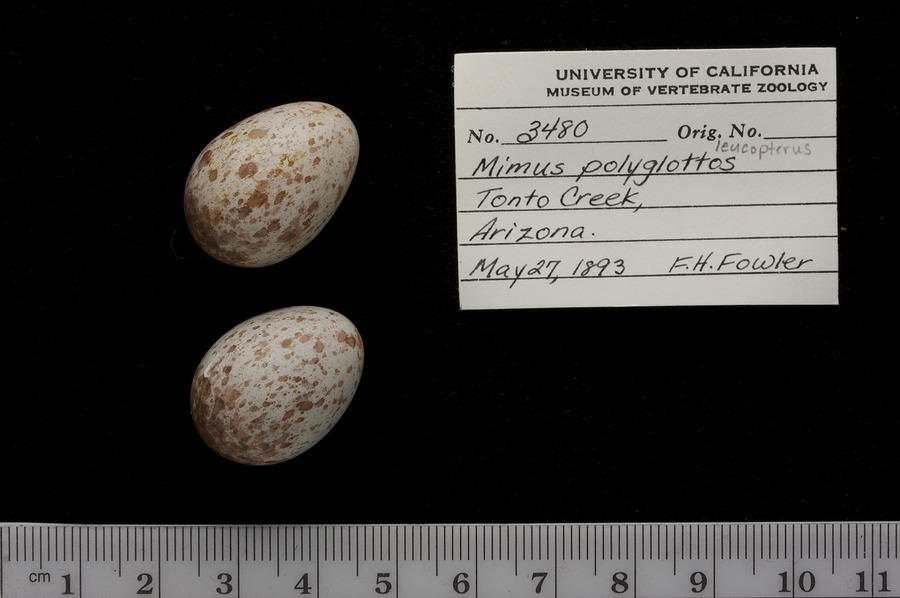 UNIVERSITY OF CALIFORNIA
MUSEUM OF VERTEBRATE ZOOLOGY
No. 3480 Orig. No.
leucopterus
Mimus polyglottos
Tonto Creek,
Arizona.
May 27, 1893 F.H. Fowler
cm 1 2 3 4 5 6 7 8 9 10 11